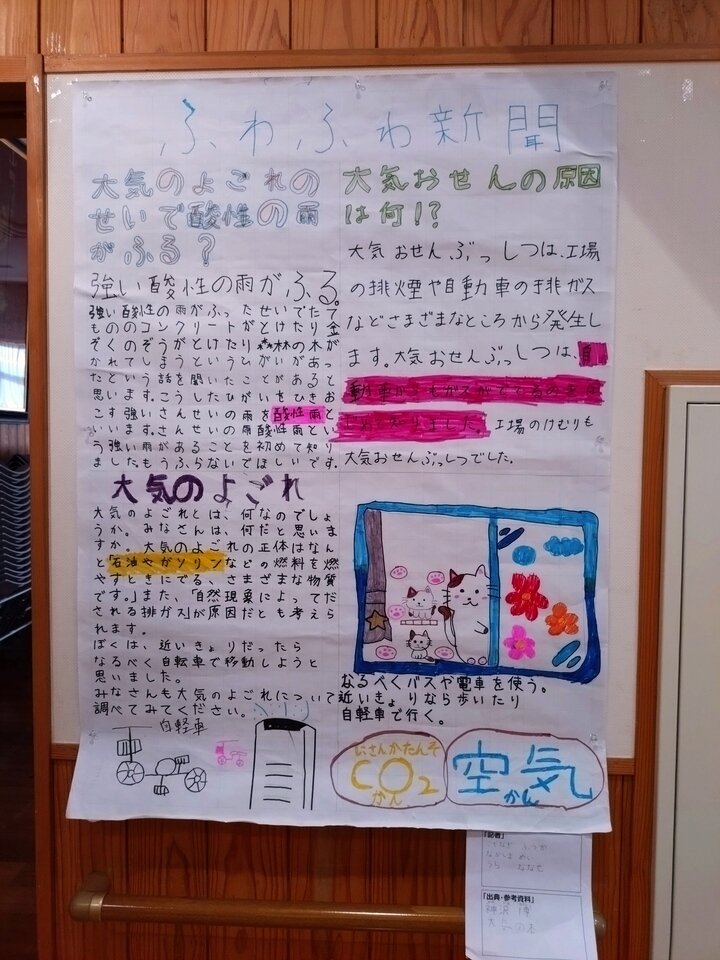 ふわふわ新聞
大気のよごれの
せいで酸性の雨
がふる?
強い酸性の雨がふる。
強い酸性の雨がふったせいでたて
もののコンクリートがとけたり金
ぞくのぞうがとけたり森林の木が
かれてしまうというひがいがあっ
たという話を聞いたことがあると
思います。こうしたひがいをひきお
こす強いさんせいの雨を酸性雨と
いいます。さんせいの雨酸性雨とい
う強い雨があることを初めて知り
ましたもうふらないでほしいです。
大気おせんの原因
は何!?
大気おせんぶっしつは、工場
の排煙や自動車の排ガス
などさまざまなところから発生し
ます。大気おせんぶっしつは、自
動車から
知りました。工場のけむりも
大気おせんぶっしつでした。
大気のよごれ
大気のよごれとは、何なのでしょ
うか。みなさんは、何だと思いま
すか。大気のよごれの正体はなん
と「石油やガソリンなどの燃料を燃
やすときにでる、さまざまな物質
です。」また、「自然現象によってだ
される排ガス」が原因だとも考えら
れます。
ぼくは、近いきょりだったら
なるべく自転車で移動しようと
思いました。
みなさんも大気のよごれについて
調べてみてください。
自軽車
なるべくバスや電車を使う。
近いきょりなら歩いたり
自軽車で行く。
にさんかたんそ
CO2
かん
空気
かん
「記者」
「出典・参考資料」